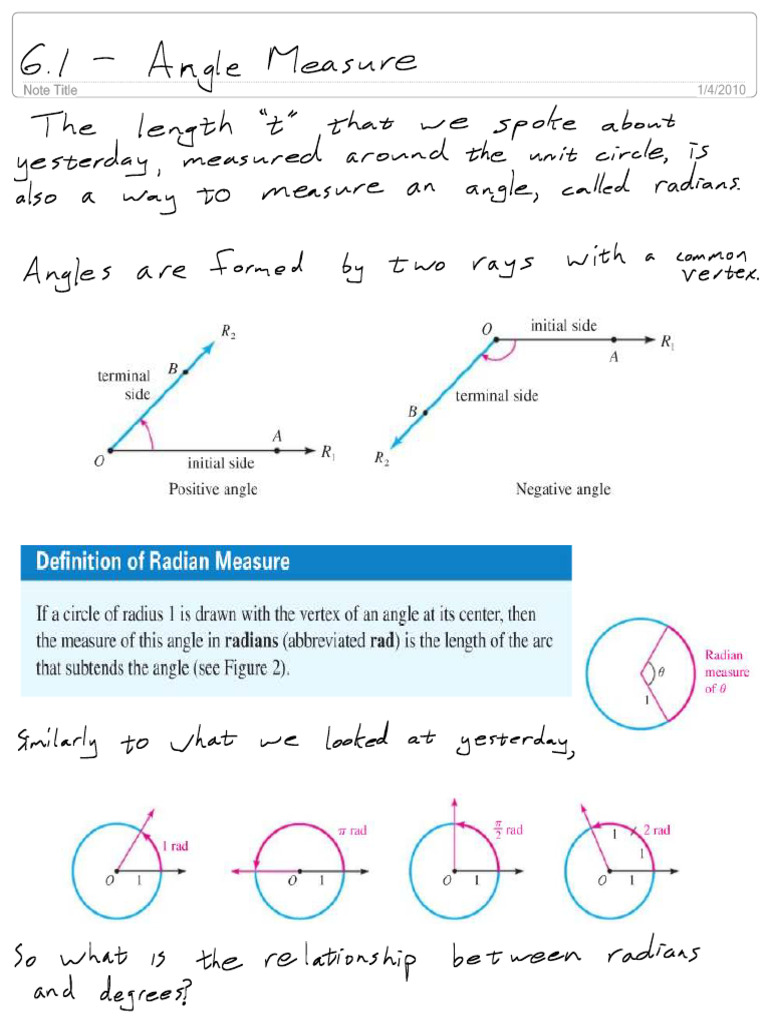 6.1 - Angle Measure
Note Title
1/4/2010
The length "t" that we spoke about
yesterday, measured around the unit circle, is
also a way to measure an angle, called radians.
Angles are formed by two rays with a common
vertex.
R2
B
terminal
side
A
O
initial side
R1
Positive angle
O
initial side
R1
A
terminal side
B
R2
Negative angle
Definition of Radian Measure
If a circle of radius 1 is drawn with the vertex of an angle at its center, then
the measure of this angle in radians (abbreviated rad) is the length of the arc
that subtends the angle (see Figure 2).
θ
1
Radian
measure
of θ
Similarly to what we looked at yesterday,
1 rad
O 1
π rad
O 1
π/2 rad
O 1
1 2 rad
1
O 1
So what is the relationship between radians
and degrees?